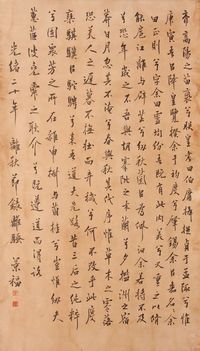 帝高陽之苗裔兮朕皇考曰伯庸攝提貞于孟陬兮惟
庚寅吾以降皇覽揆余于初度兮肇錫余以嘉名名余
曰正則兮字余曰靈均紛吾既有此內美兮又重之以脩
能扈江離與辟芷兮紉秋蘭以為佩汩余若將不及
兮恐年歲之不吾與朝搴阰之木蘭兮夕攬洲之宿
莽日月忽其不淹兮春與秋其代序惟草木之零落
恐美人之遲暮不撫壯而棄穢兮何不改乎此度
乘騏驥以馳騁兮來吾道夫先路昔三后之純粹
兮固眾芳之所在雜申椒與菌桂兮豈維紉夫
蕙茝彼堯舜之耿介兮既遵道而得路
光緒三十年 秋節錄離騷 景福